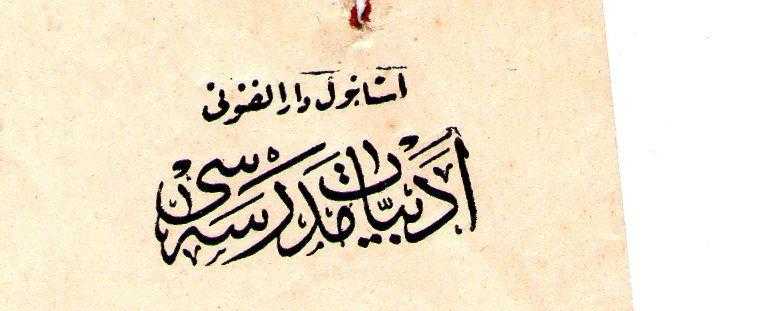 استانبول دارالفنونی
أدبيّات مدرسه سی